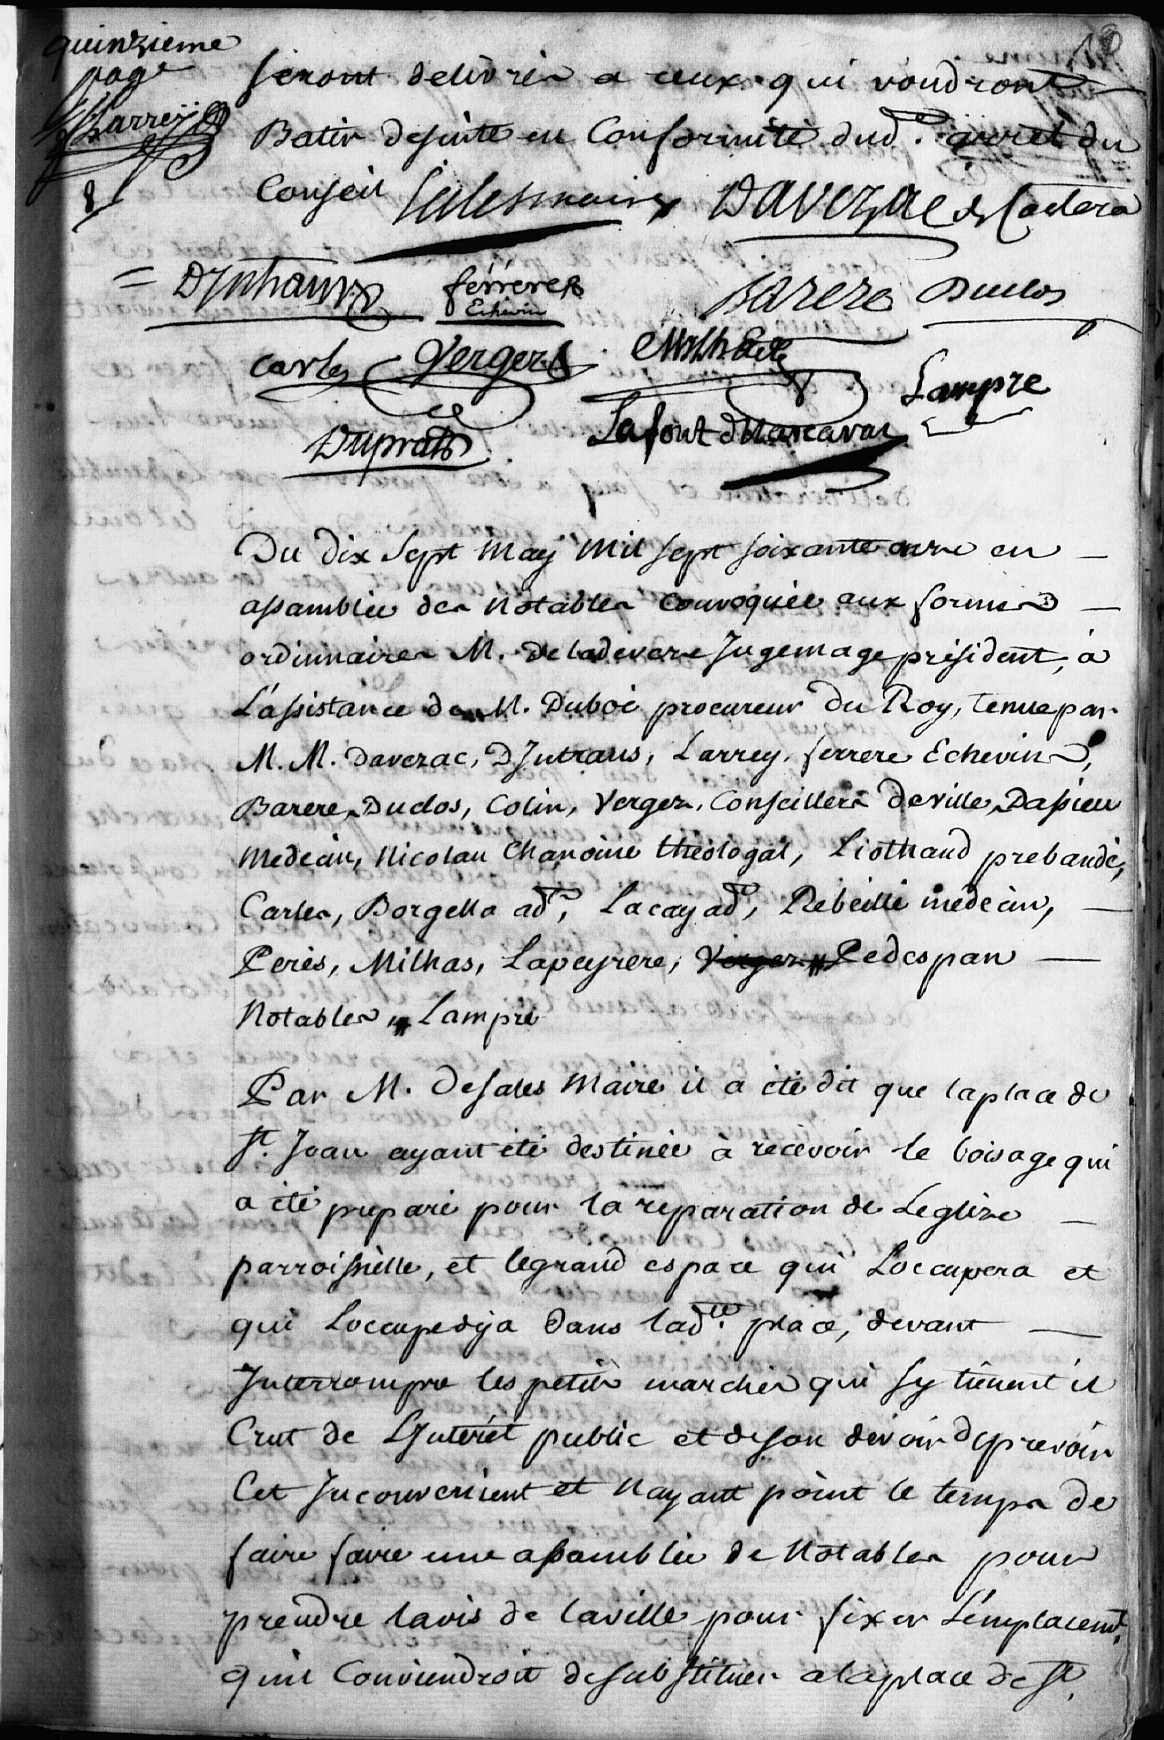 quinzieme
page
Larrey
8
seront delivrés a ceux qui voudront
Batir desuite en Conformité dud. arret du
Conseil Sales maire Davezac de Castera
DIntrans ferrere Barere Duclos
Echevin
Carles Verges Milhas Lampre
Duprat Lafont
Du dix Sept May Mil sept soixante onze en
assamblée des Notables Convoquée aux formes
ordinnaires M. de ladevere Jugemage président, à
L'assistance de M. Duboé procureur du Roy, tenue par
M. M. Davezac, DIntrans, Larrey, ferrere Echevins,
Barere, Duclos, Colin, Verges, Conseillers deville, Dassieu
Medecin, Nicolau Chanoine théologal, Liothaud prebandé,
Carles, Borgella adt, Lacay adt, Rebeille medecin,
Perés, Milhas, Lapeyrere, Verges Pedespan
Notables, Lampre
Par M. Desales Maire il a été dit que la place de
St. Jean ayant été destinée à recevoir le boisage qui
a été preparé pour la reparation de Leglize
parroissielle, et legrand espace qui Loccupera et
qui Loccupe deja dans lade. place, devant
Interrompre les petits marchés qui sy tienent il
Crut de LInterét public et deson devoir de prevoir
Cet Inconvenient et Nayant point le temps de
faire faire une assamblée de Notables pour
prendre lavis de laville pour fixer L'emplacemt.
quil Conviendroit desubstituer alaplace de St.